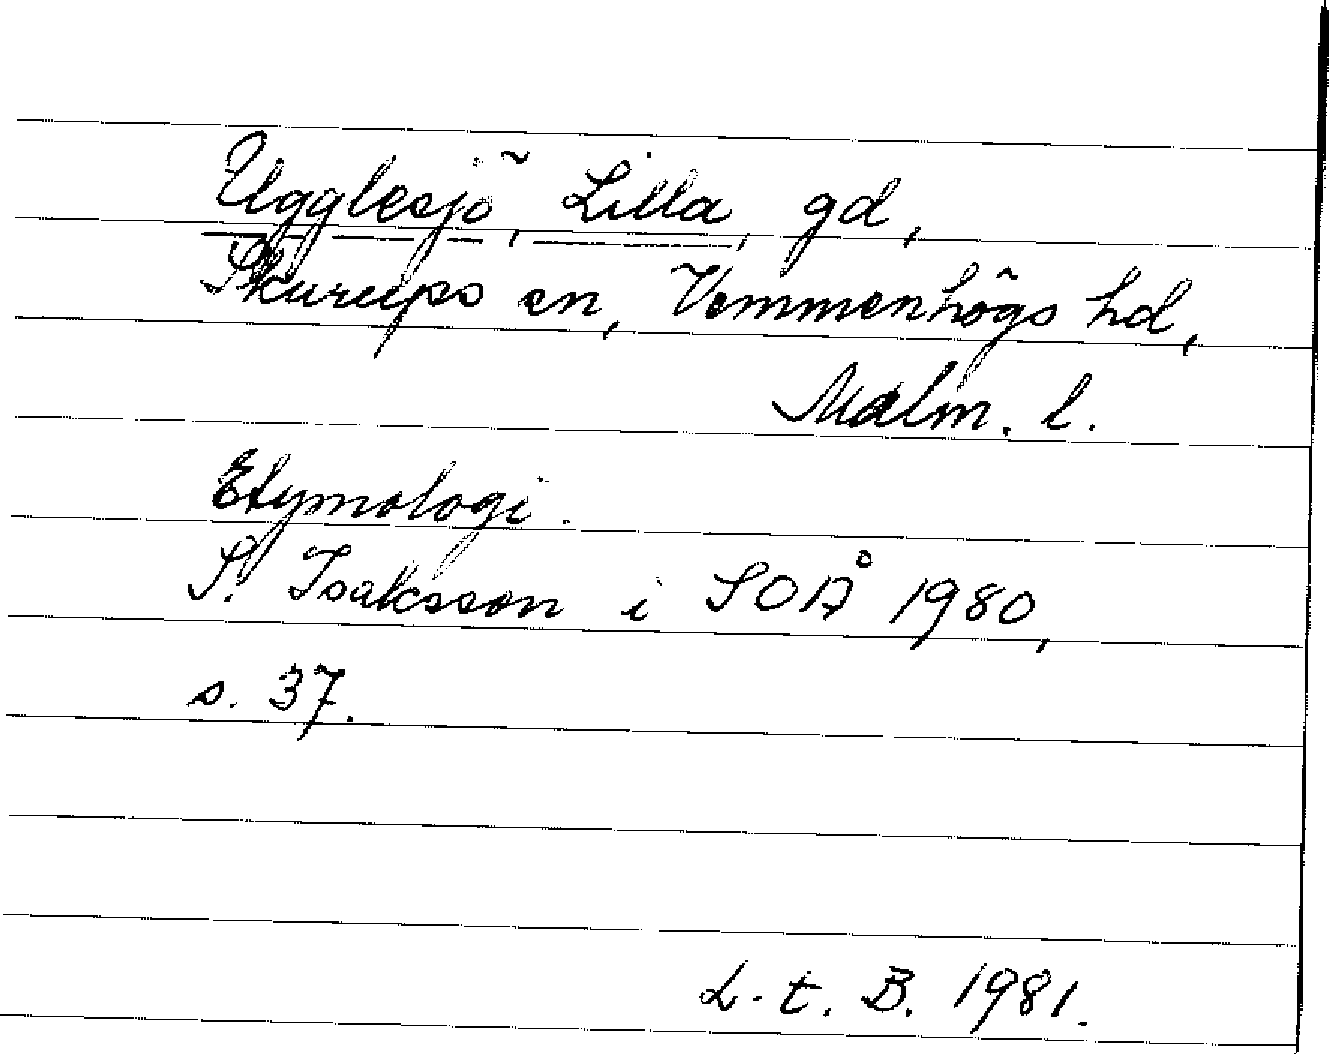 Ugglesjö, Lilla, gd,
Skurups sn, Vemmenhögs hd,
Malm. l.
Etymologi.
S. Isaksson i SOÅ 1980,
s. 37.
L. t. B. 1981.